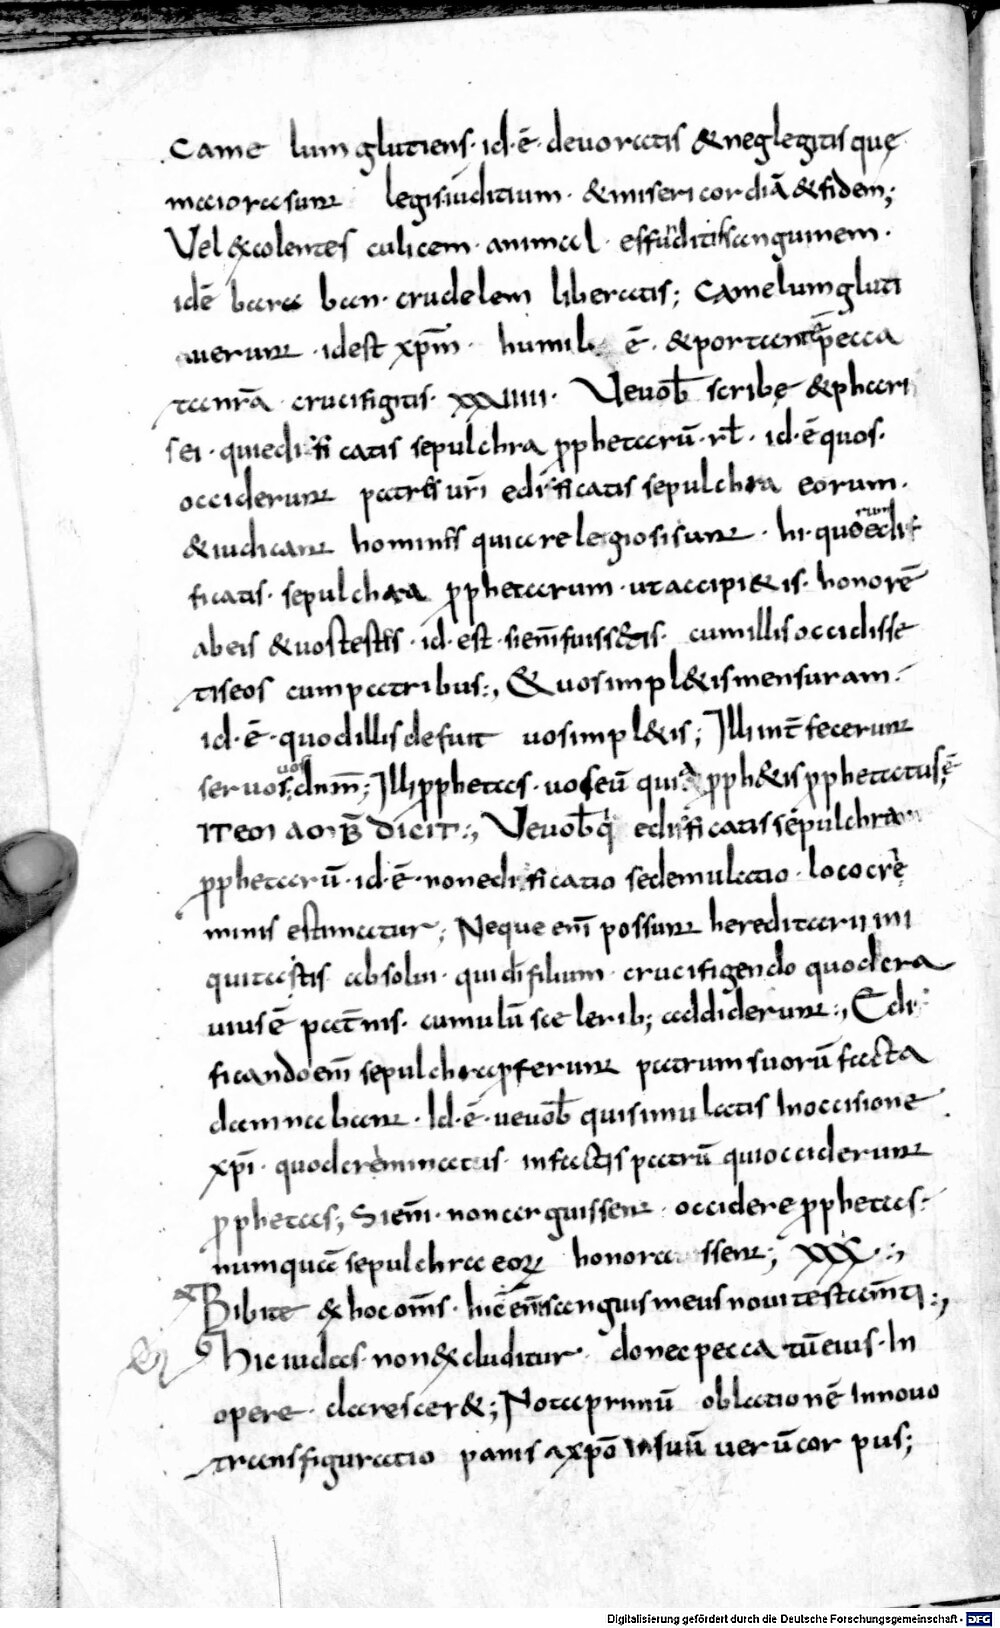 came lum glutiens · id · ē · deuoratis & neglegitis quę
maiora sunt legis iuditium · & misericordiā & fidem;
Vel excolentes culicem · animal · effuditis sanguinem ·
id ē bara ban · crudelem liberatis; camelum gluti
uerunt · id est xpm̄ · humil ē · & portantē pecca
ta nr̄a · crucifigitis · xxiiiii · Ue uob̄ scribę & phari
sei · qui edifficatis sepulchra pphetarū · rł · id · ē quos ·
occiderunt patres ur̄i edifficatis sepulchra eorum ·
& iudicant homines quia relegiosi sunt · hi · quorum edif
ficatis · sepulchra pphetarum · ut accipietis · honorē
ab eis & uos testes · id · est · si enī fuissetis · cum illis occidisse
tis eos cum patribus:, & uos impletis mensuram ·
id · ē · quod illis defuit uos impletis; Illi int̄fecerunt
seruos; uos dnm̄; Illi pphetas · uos eū qui a pphetis pphetatus ē;
ITem AMB̄ DICIT:, Ue uob̄ q edifficatis sepulchra
pphetarū · id · ē · non edificatio sed emulatio · loco cre
minis estimatur; Neque enī possunt hereditarii
absolui · qui dī filium · crucifigendo quod gra
uius ē pat̄nis · cumulū scelerib; addiderunt:, Edi
ficando enī sepulchra pferunt patrum suorū facta
damnabant · Id · ē · ue uob̄ qui simulatis In occisione
xpī · quod creminatis · in factis patrū qui occiderunt
pphetas; Si enī · non arguissent · occidere pphetas ·
numquā sepulchra eorum honorassent; xxx ·:,
Bibite ex hoc om̄s · hic ē enī sanguis meus noui testam̄ti:,
Hic iudas · non excluditur · donec peccatū eius · In
opere · daresceret; Nota primū oblationē In nouo
transfiguratio panis a xpō in suū uerū corpus;
Digitalisierung gefördert durch die Deutsche Forschungsgemeinschaft - DFG